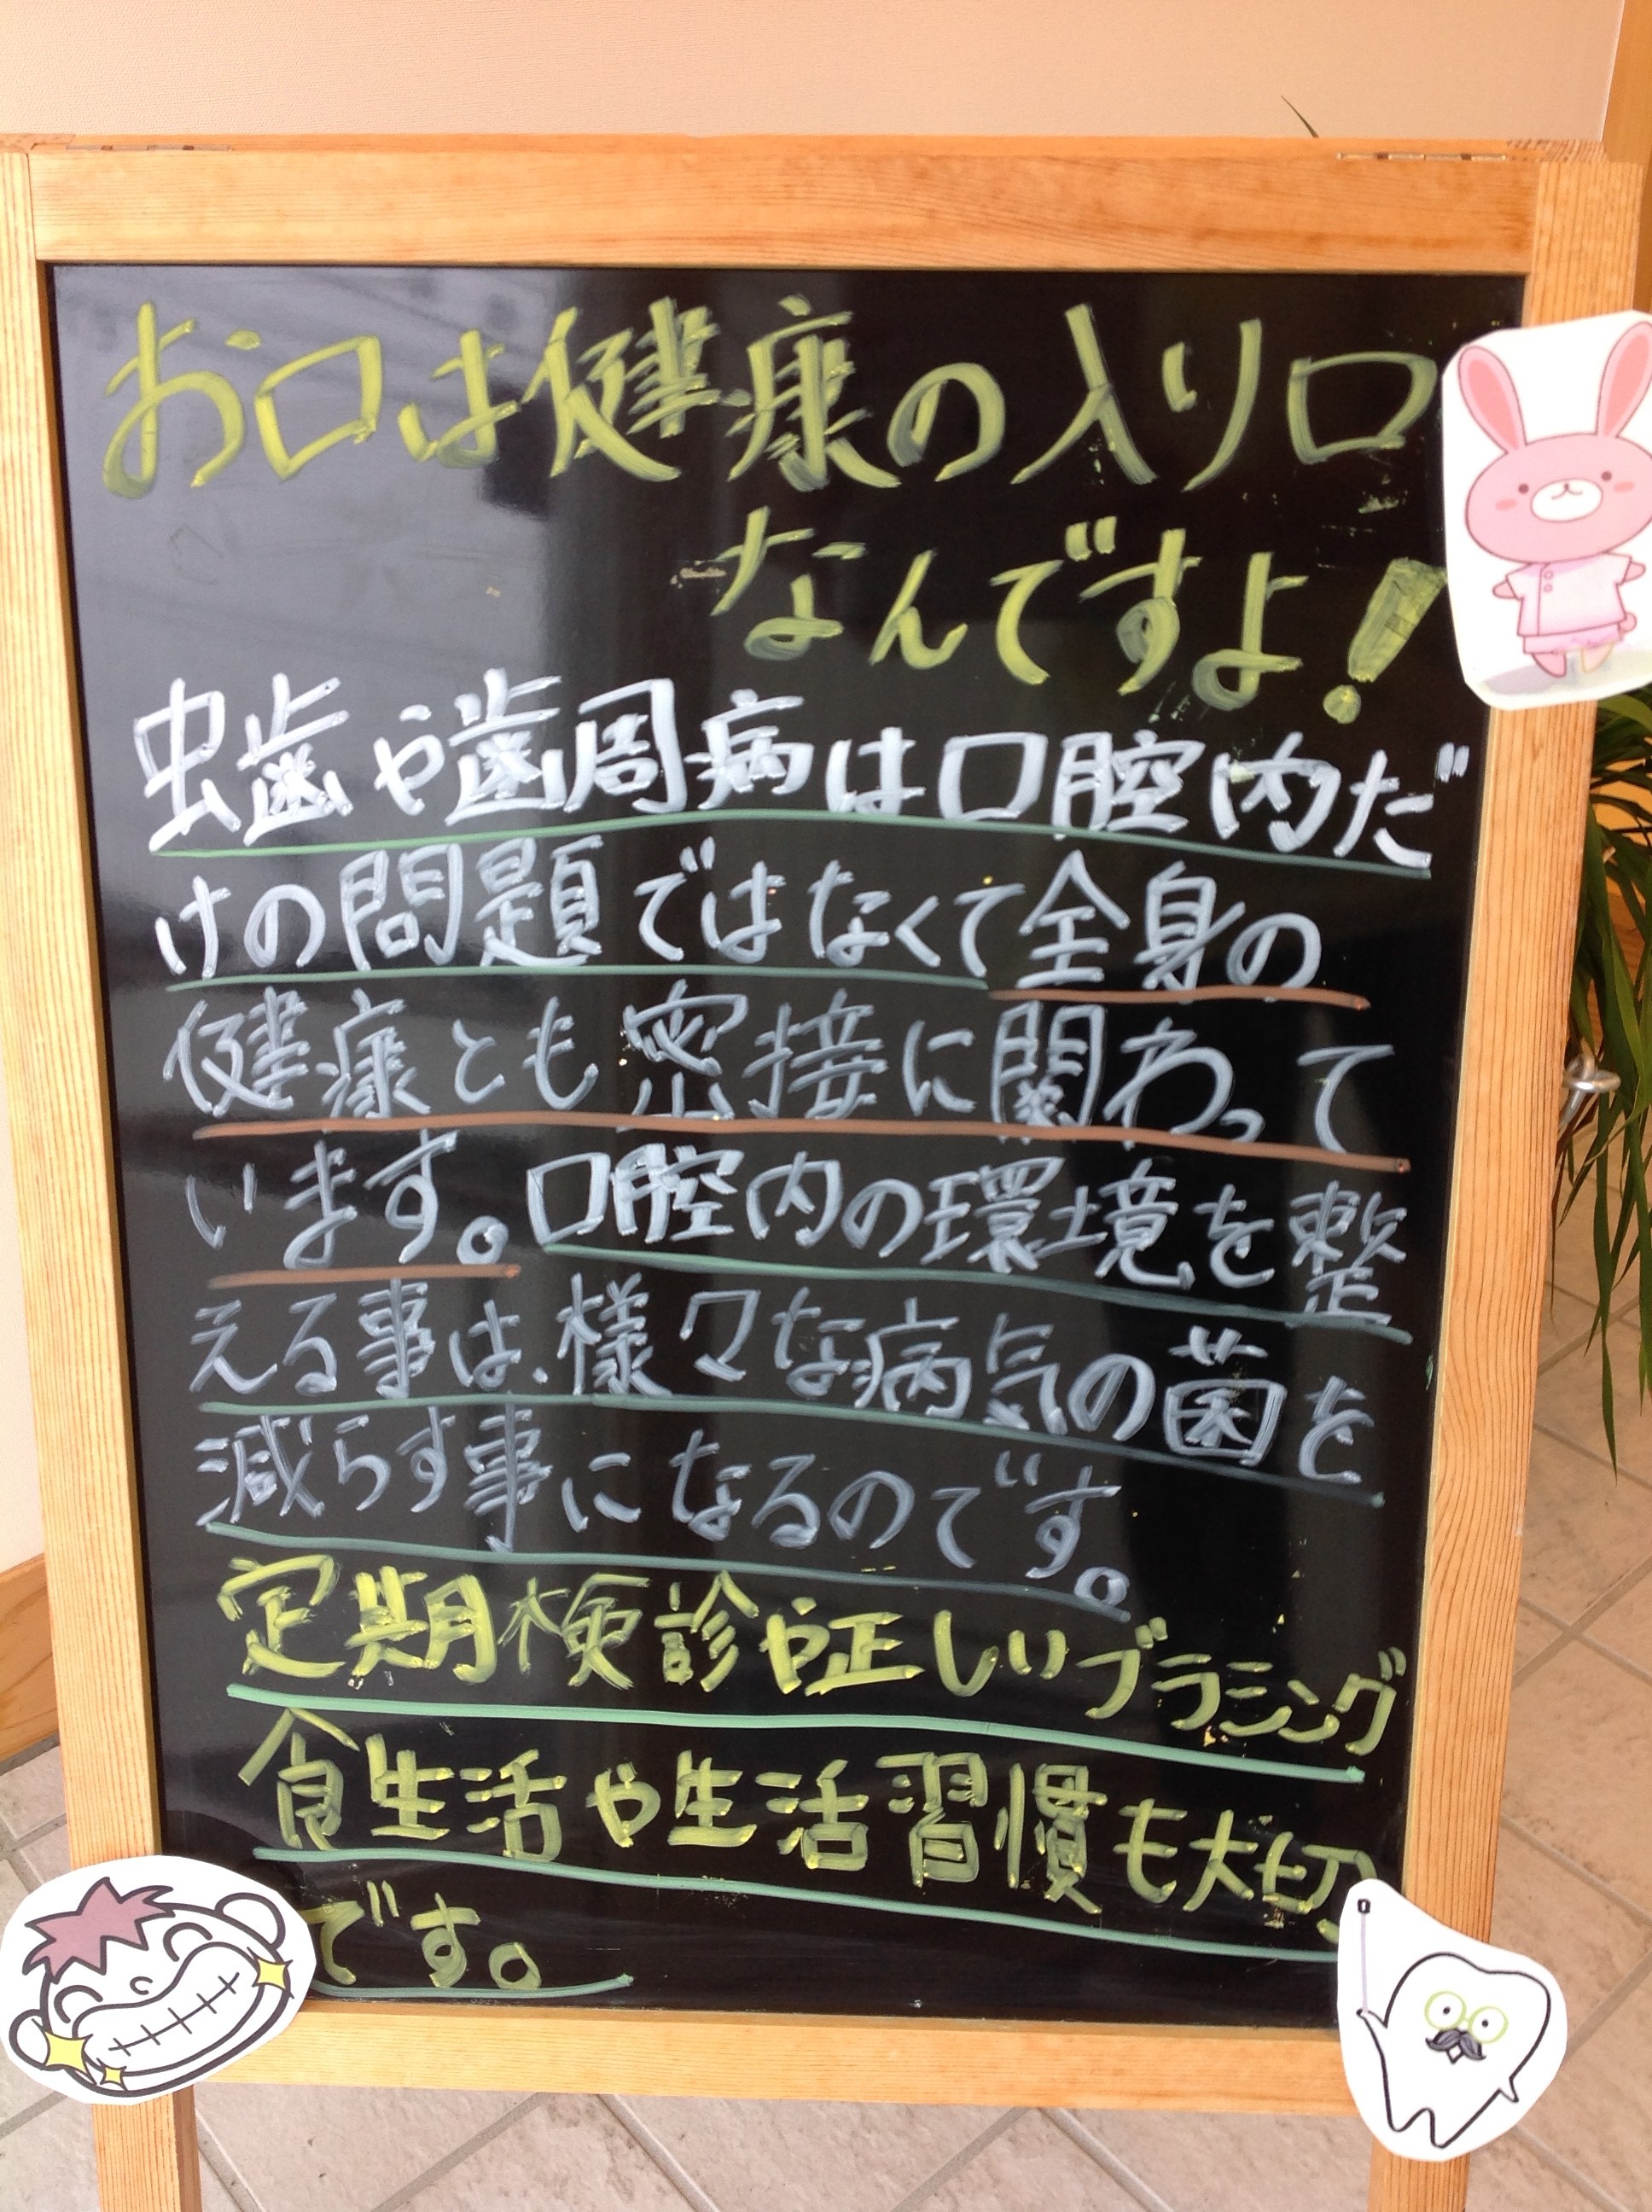 お口は健康の入り口
なんですよ!
虫歯や歯周病は口腔内だ
けの問題ではなくて全身の
健康とも密接に関わって
います。口腔内の環境を整
える事は、様々な病気の菌を
減らす事になるのです。
定期検診や正しいブラミング
食生活や生活習慣も大切
です。